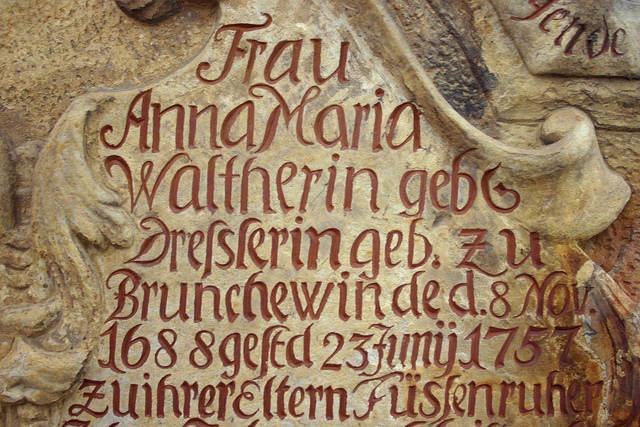 gende
Frau
Anna Maria
Waltherin geb G
Dreſsſerin geb. zu
Brunchewinde d. 8 Nov.
1688 geſtd 23 Junij 1757
zu ihrer Eltern Füſsen ruher